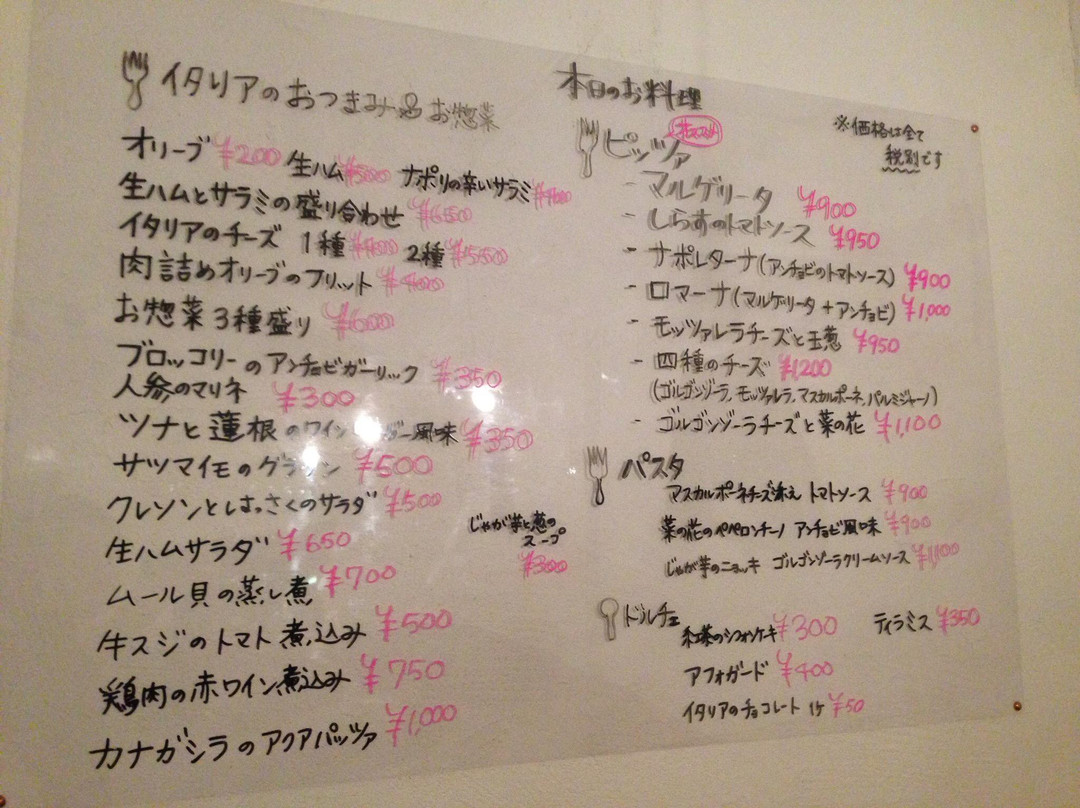 イタリアのおつまみ& お惣菜
オリーブ ¥200 生ハム ¥500 ナポリの辛いサラミ ¥400
生ハムとサラミの盛り合わせ ¥650
イタリアのチーズ 1種 ¥400 2種 ¥550
肉詰めオリーブのフリット ¥400
お惣菜3種盛り ¥600
ブロッコリーのアンチョビガーリック ¥350
人参のマリネ ¥300
ツナと蓮根のワイン 風味 ¥350
サツマイモのグラタン ¥500
クレソンとはっさくのサラダ ¥500
生ハムサラダ ¥650
じゃが芋と葱の
スープ
¥300
ムール貝の蒸し煮 ¥700
牛スジのトマト煮込み ¥500
鶏肉の赤ワイン煮込み ¥750
カナガシラのアクアパッツァ ¥1,000
本日のお料理
※価格は全て
税別です
ピッツァ オススメ
- マルゲリータ ¥900
- しらすのトマトソース ¥950
- ナポレターナ(アンチョビのトマトソース) ¥900
- ロマーナ(マルゲリータ+アンチョビ) ¥1,000
- モッツァレラチーズと玉葱 ¥950
- 四種のチーズ ¥1200
(ゴルゴンゾーラ, モッツァレラ, マスカルポーネ, パルミジャーノ)
- ゴルゴンゾーラチーズと菜の花 ¥1,100
パスタ
マスカルポーネチーズ添え トマトソース ¥900
菜の花のペペロンチーノ アンチョビ風味 ¥900
じゃが芋のニョッキ ゴルゴンゾーラクリームソース ¥1,100
ドルチェ
紅茶のシフォンケーキ ¥300 ティラミス ¥350
アフォガード ¥400
イタリアのチョコレート 1ケ ¥50